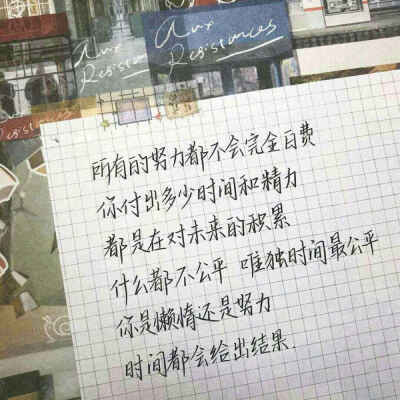 Aux
Resistances
Aux
Resistances
Resistances
所有的努力都不会完全白费
你付出多少时间和精力
都是在对未来的积累
什么都不公平 唯独时间最公平
你是懒惰还是努力
时间都会给出结果.